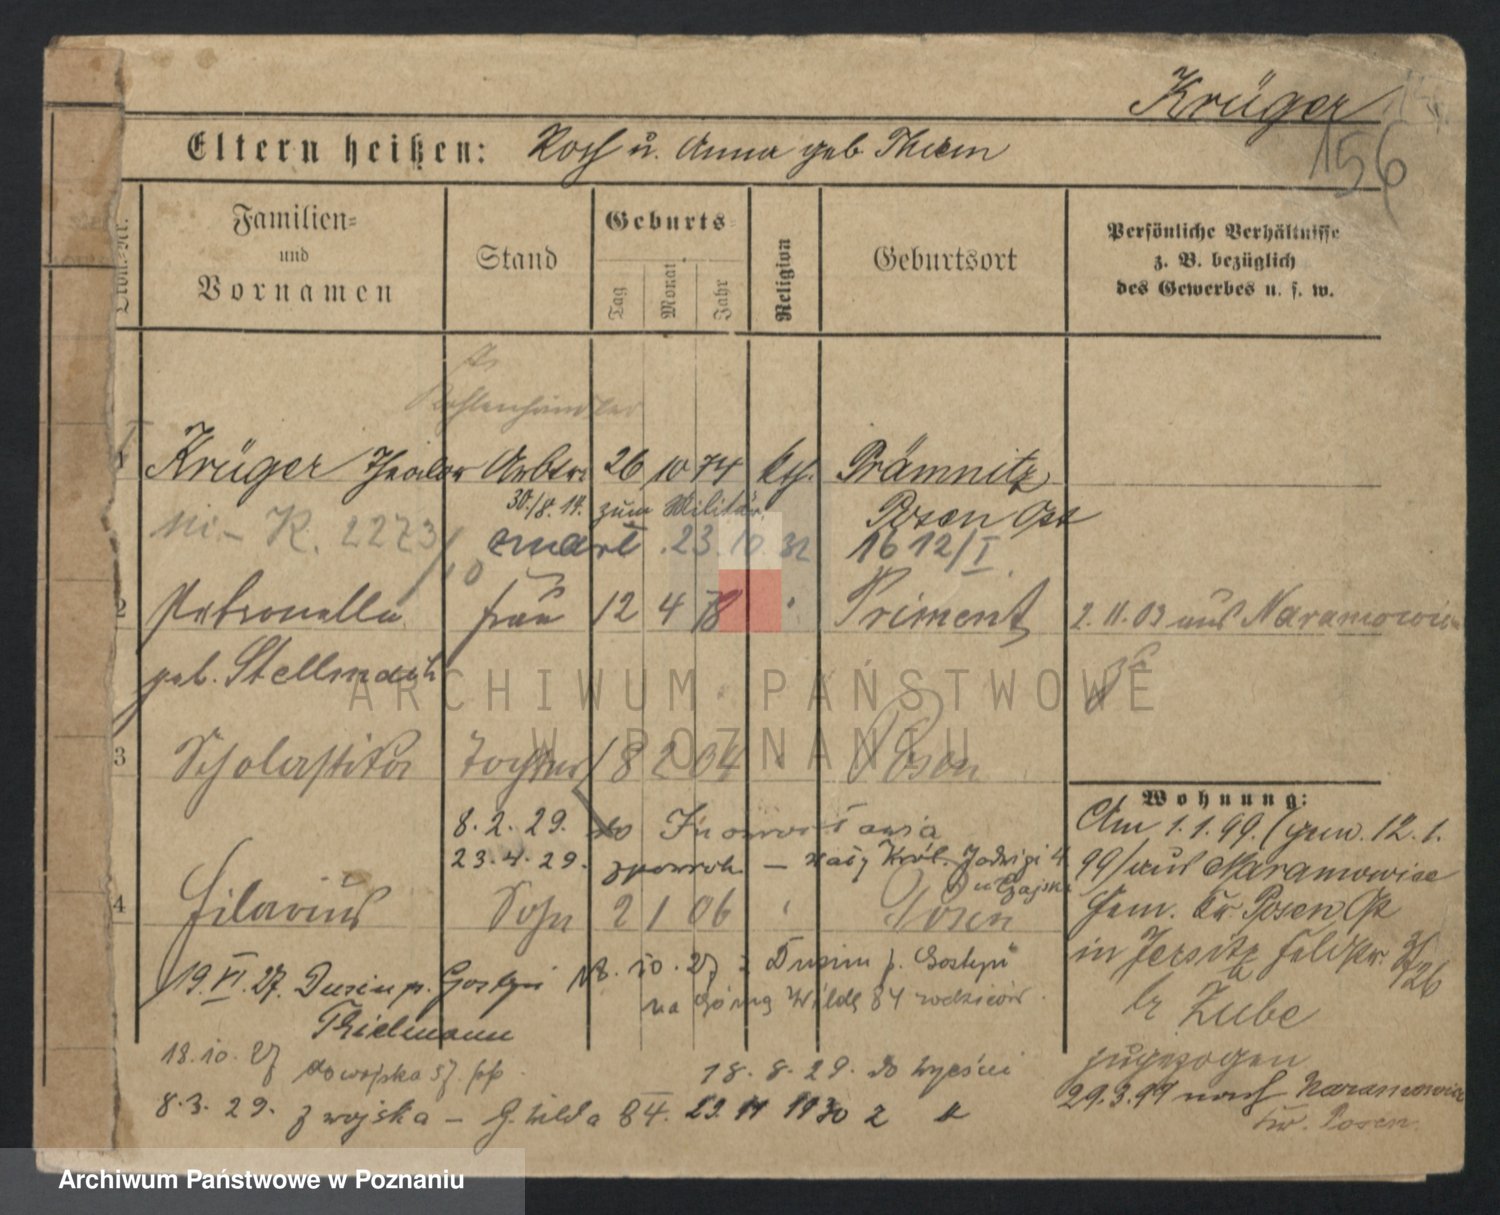 Krüger
156
Eltern heißen: Roch u. Anna geb. Thiem
Familien= und Vornamen
Stand
Geburts=
Tag
Monat
Jahr
Religion
Geburtsort
Persönliche Verhältnisse
z. B. bezüglich
des Gewerbes u. s. w.
Kohlenhändler
1 Krüger Theodor Arbtr. 26 10 74 kth. Prämnitz
30./8. 14. zum Militär Posen Ost
K. 2273/10 zmarł 23.10.32 1612/I
2 Petronella Frau 12 4 78 " Priment 2.11.03 aus Naramowice
geb. Stellmach
3 Scholastika Tochter 8 2 04 " Posen
8.2.29. do Inowrocławia
23.4.29. zpowrotem — Król. Jadwigi 4
4 Hilarius Sohn 2 1 06 " Posen
19.VI.27. Dusin p. Gostyń 18.10.27 z Dusin p. Gostyń
na Górną Wildę 84 rodziców
Thielmann
18.10.27 do wojska 57. pp. 18.8.29. do
8.3.29. z wojska — G. Wilda 84. 29 11 1930 z
Wohnung:
Am 1.1.99. (gem. 12.1.
99) aus Naramowice
Gem. Kr Posen Ost
in Jersitz Feldstr.
br Zube
zugezogen
29.3.99 nach Naramowice
Kr. Posen.
ARCHIWUM PAŃSTWOWE
W POZNANIU
Archiwum Państwowe w Poznaniu